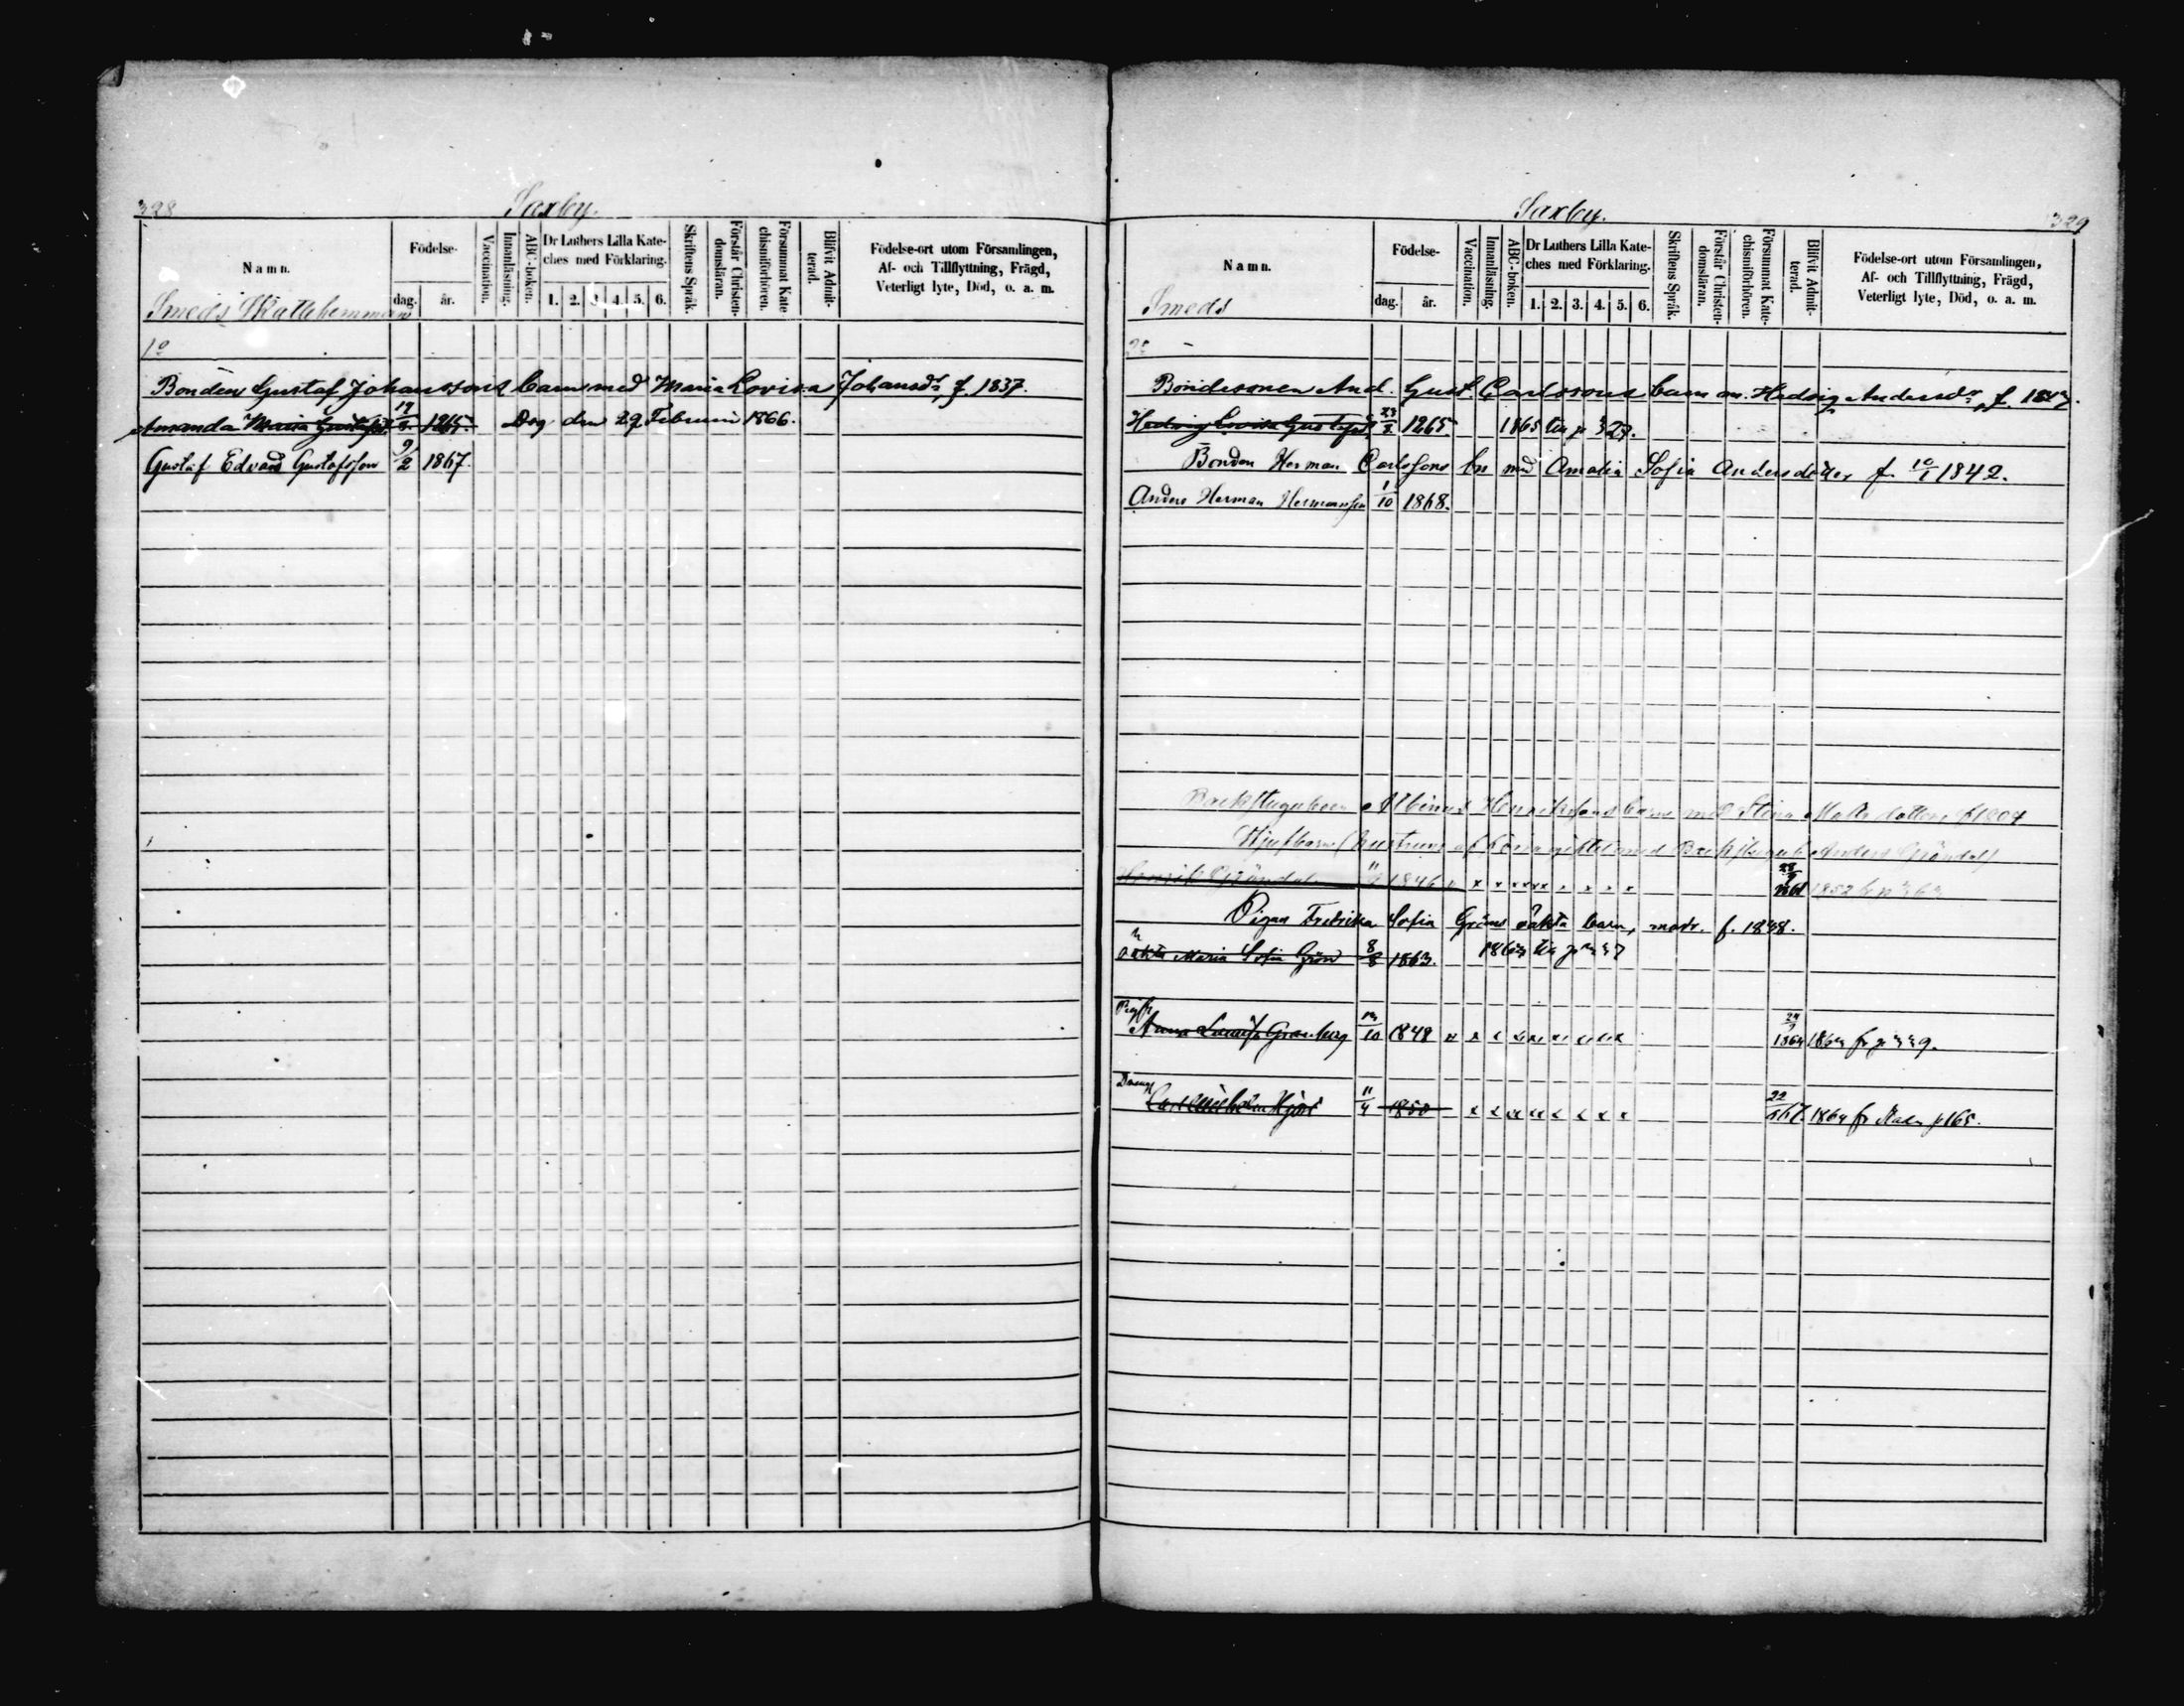 328
Saxby.
Namn.
Födelse-
dag.
år.
Vaccination.
Innanläsning.
ABC-boken.
Dr Luthers Lilla Kate-
ches med Förklaring.
1. 2. 3. 4. 5. 6.
Skriftens Språk.
Förstår Christen-
domsläran.
Försummat Kate
chismiförhören.
Blifvit Admit-
terad.
Födelse-ort utom Församlingen,
Af- och Tillflyttning, Frägd,
Veterligt lyte, Död, o. a. m.
Smeds Skattehemman
1o
Bonden Gustaf Johanssons barn med Maria Lovisa Johansdr, f 1837.
Amanda Maria 1865. Dog den 29 Februari 1866.
Gustaf Edvard Gustafsson 9/2 1867.
Saxby.
329
Namn.
Födelse-
dag.
år.
Vaccination.
Innanläsning.
ABC-boken.
Dr Luthers Lilla Kate-
ches med Förklaring.
1. 2. 3. 4. 5. 6.
Skriftens Språk.
Förstår Christen-
domsläran.
Försummat Kate-
chismiförhören.
Blifvit Admit-
terad.
Födelse-ort utom Församlingen,
Af- och Tillflyttning, Frägd,
Veterligt lyte, Död, o. a. m.
Smeds
2o
Bondesonen And. Gust. Carlssons barn m. Hedvig Andersdr, f. 1843.
Hedvig Lovisa 1865. 1865 till p 327.
Bonden Herman Carlssons bn med Amalia Sofia Andersdotter f. 10/1 1842.
Anders Herman Hermansson 1/10 1868.
Backstugukarlen Albinus Henrikssons barn med Stina Matts dotter f 1804
Styfbarn (hustruns af förra giftet med Backstuguk Anders Gröndal)
Henrik Gröndal 1846 x x x x x x x x x 1861 1852 fr p 363
Pigan Fredrika Sofia Gröns oäkta barn, modr. f. 1848.
oäkta Maria Sofia Grön 8/8 1863. 1863 till p 337
Pig
Anna Lovisa Granberg 10 1848 x x x x x x x x x 1864 1864 fr p 339.
Dreng
Carl Wilhelm Hjort 11/4 1850 x x x x x x x x x 22 1867 1864 fr p 165.